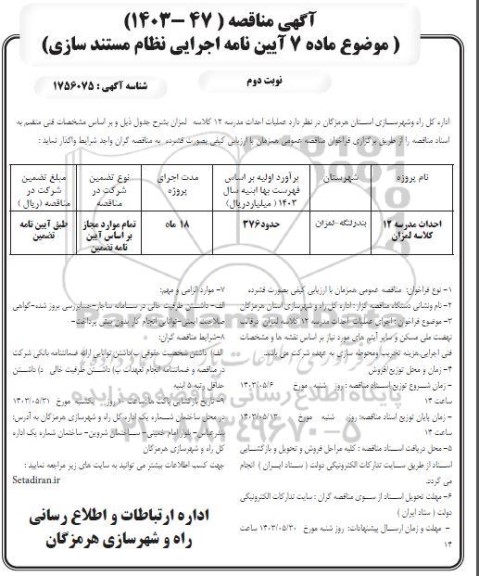 آگهی مناقصه ( ۴۷ -۱۴۰۳)
( موضوع ماده ۷ آیین نامه اجرایی نظام مستند سازی)
نوبت دوم
شناسه آگهی : ۱۷۵۶۰۷۵
اداره کل راه وشهرسازی استان هرمزگان در نظر دارد عملیات احداث مدرسه ۱۲ کلاسه لمزان بشرح جدول ذیل و بر اساس مشخصات فنی منضم به
اسناد مناقصه را از طریق برگزاری فراخوان مناقصه عمومی همزمان با ارزیابی کیفی بصورت فشرده به مناقصه گران واجد شرایط واگذار نماید :
نام پروژه
شهرستان
برآورد اولیه بر اساس فهرست بها ابنیه سال ۱۴۰۳ ( میلیاردریال)
مدت اجرای پروژه
نوع تضمین شرکت در مناقصه
مبلغ تضمین شرکت در مناقصه (ریال )
احداث مدرسه ۱۲ کلاسه لمزان
بندرلنگه -لمزان
حدود۳۷۶
۱۸ ماه
تمام موارد مجاز بر اساس آیین نامه تضمین
طبق آیین نامه تضمین
۱- نوع فراخوان: مناقصه عمومی همزمان با ارزیابی کیفی بصورت فشرده
۲-نام ونشانی دستگاه مناقصه گزار : اداره کل راه و شهرسازی استان هرمزگان
۳-موضوع فراخوان -اجرای عملیات احداث مدرسه ۱۲ کلاسه لمزان در قالب
نهضت ملی مسکن و سایر آیتم های مورد نیاز بر اساس نقشه ها و مشخصات
فنی اجرایی.هزینه تخریب ومحوطه سازی به عهده شرکت می باشد.
۴- زمان و محل توزیع فروش
- زمان شروع توزیع اسناد مناقصه : روز شنبه مورخ ۱۴۰۳/۰۵/۶
ساعت ۱۴
- زمان پایان توزیع اسناد مناقصه: روز شنبه مورخ ۱۴۰۳/۰۵/۱۳
ساعت ۱۴
۵- محل دریافت اسناد مناقصه : کلیه مراحل فروش و تحویل و بازگشایی
اسناد از طریق سایت تدارکات الکترونیکی دولت ( ستاد ایران ) انجام
می گردد.
۶- مهلت تحویل اسناد از سوی مناقصه گران : سایت تدارکات الکترونیکی
دولت ( ستاد ایران )
- مهلت و زمان ارسال پیشنهادات: روز شنبه مورخ ۱۴۰۳/۰۵/۳۰ ساعت
۱۴
۷- موارد الزامی و مهم:
الف- داشتن ظرفیت خالی در سامانه ساجار-حسابرسی بروز شده-گواهی
صلاحیت ایمنی-توانایی انجام کار بدون پیش پرداخت-
۸-شرایط مناقصه گران:
الف) داشتن شخصیت حقوقی ب)داشتن توانایی ارائه ضمانتنامه بانکی شرکت
در مناقصه و ضمانتنامه انجام تعهدات پ) داشتن ظرفیت خالی د) داشتن
حداقل رتبه ۵ ابنیه
۹- تاریخ بازگشایی پاکت ها: ساعت ۱۰ روز یکشنبه مورخ ۱۴۰۳/۰۵/۳۱
در محل ساختمان شماره یک اداره کل راه و شهرسازی هرمزگان به آدرس:
بندرعباس- بلوار امام خمینی- ساختمان شروین- ساختمان شماره یک اداره
کل راه و شهرسازی هرمزگان
جهت کسب اطلاعات بیشتر می توانید به سایت های زیر مراجعه نمایید :
Setadiran.ir
اداره ارتباطات و اطلاع رسانی
راه و شهرسازی هرمزگان